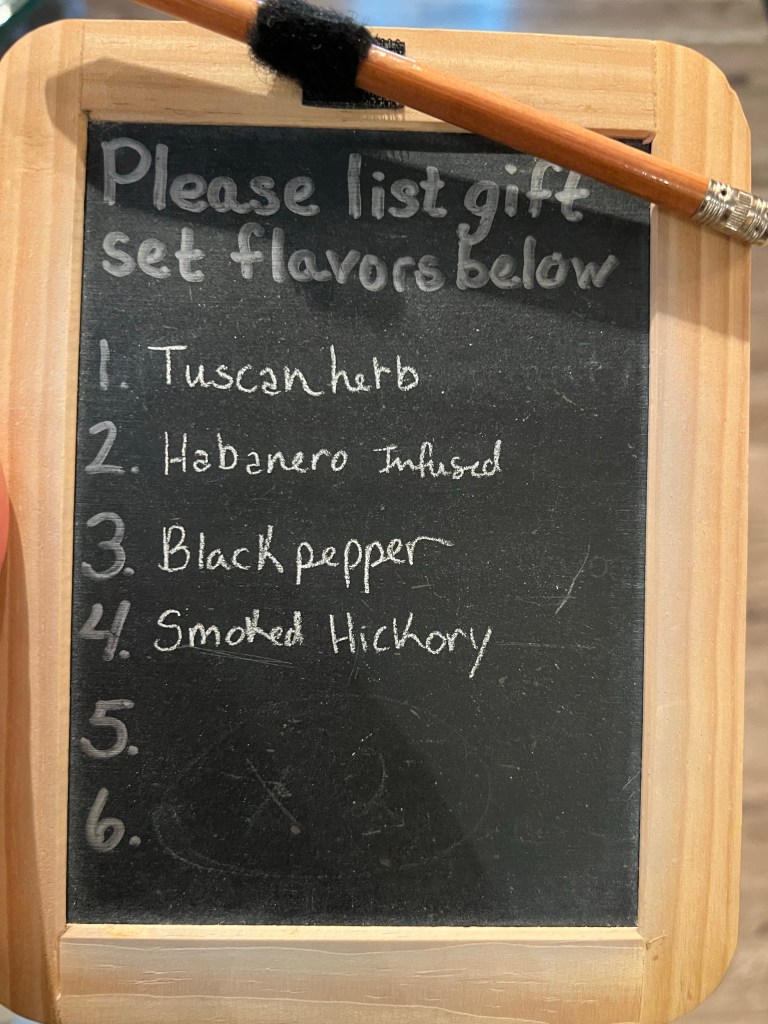 Please list gift
set flavors below
1. Tuscan herb
2. Habanero Infused
3. Black pepper
4. Smoked Hickory
5.
6.